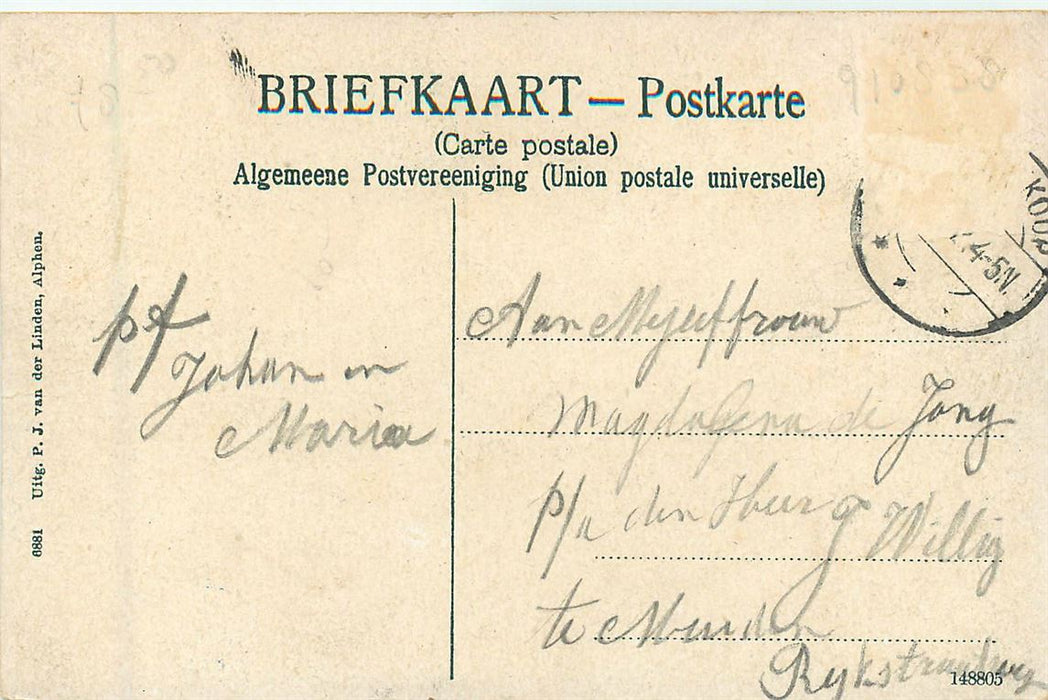 BRIEFKAART — Postkarte
(Carte postale)
Algemeene Postvereeniging (Union postale universelle)
6881 Uitg. P. J. van der Linden, Alphen.
4-5.N
pf
Johan en
Maria
Aan Mejuffrouw
Magdalena de Jong
p/a den Heer J Willig
te Muiden
148805